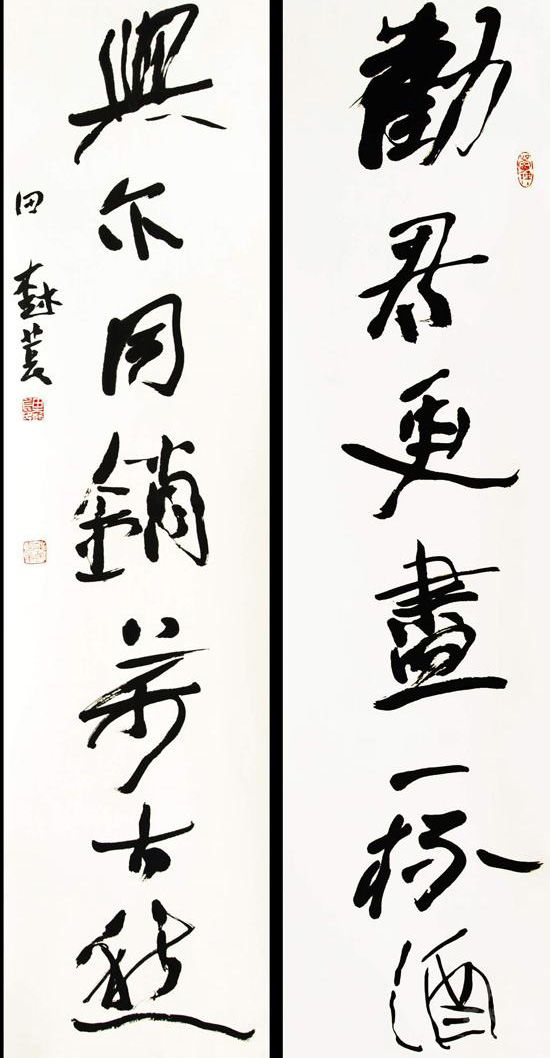 勸君更盡一杯酒
與尔同銷萬古愁
田樹萇